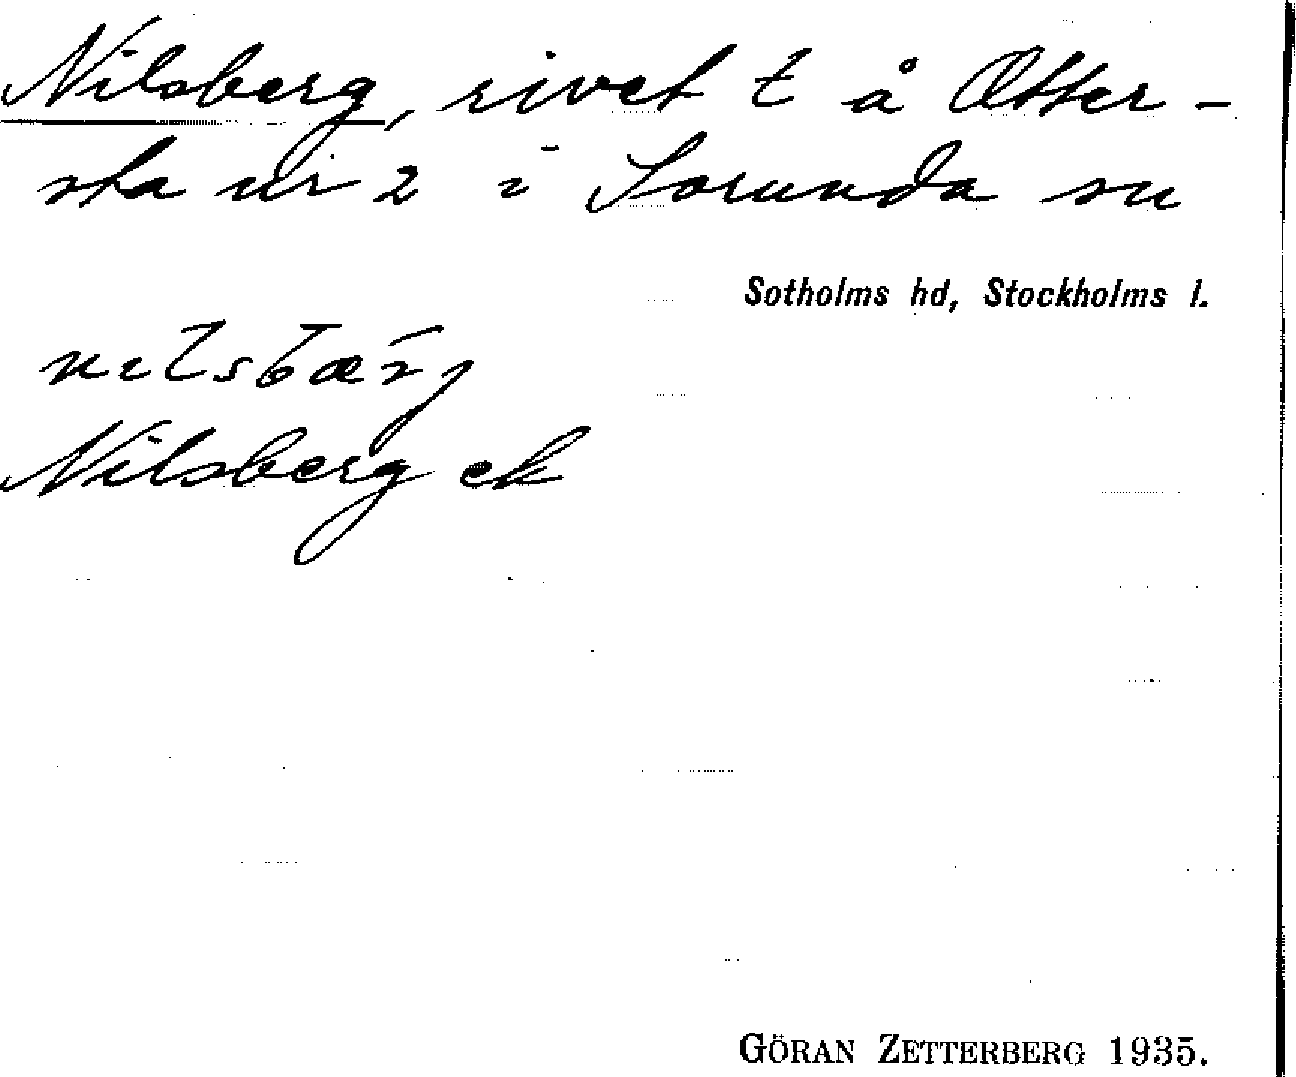 Nilsberg, rivet t å Ötter-
sta nr 2 i Sorunda sn
Sotholms hd, Stockholms l.
Nilsberg ek
GÖRAN ZETTERBERG 1935.